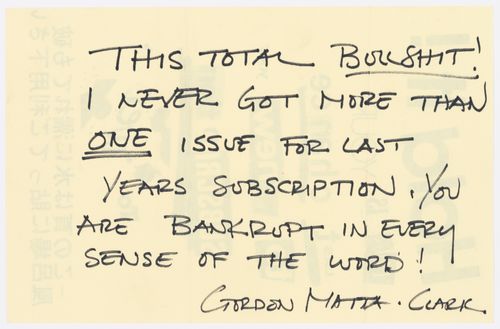 THIS TOTAL BULLSHIT!
I NEVER GOT MORE THAN
ONE ISSUE FOR LAST
YEARS SUBSCRIPTION. YOU
ARE BANKRUPT IN EVERY
SENSE OF THE WORD!
GORDON MATTA-CLARK.